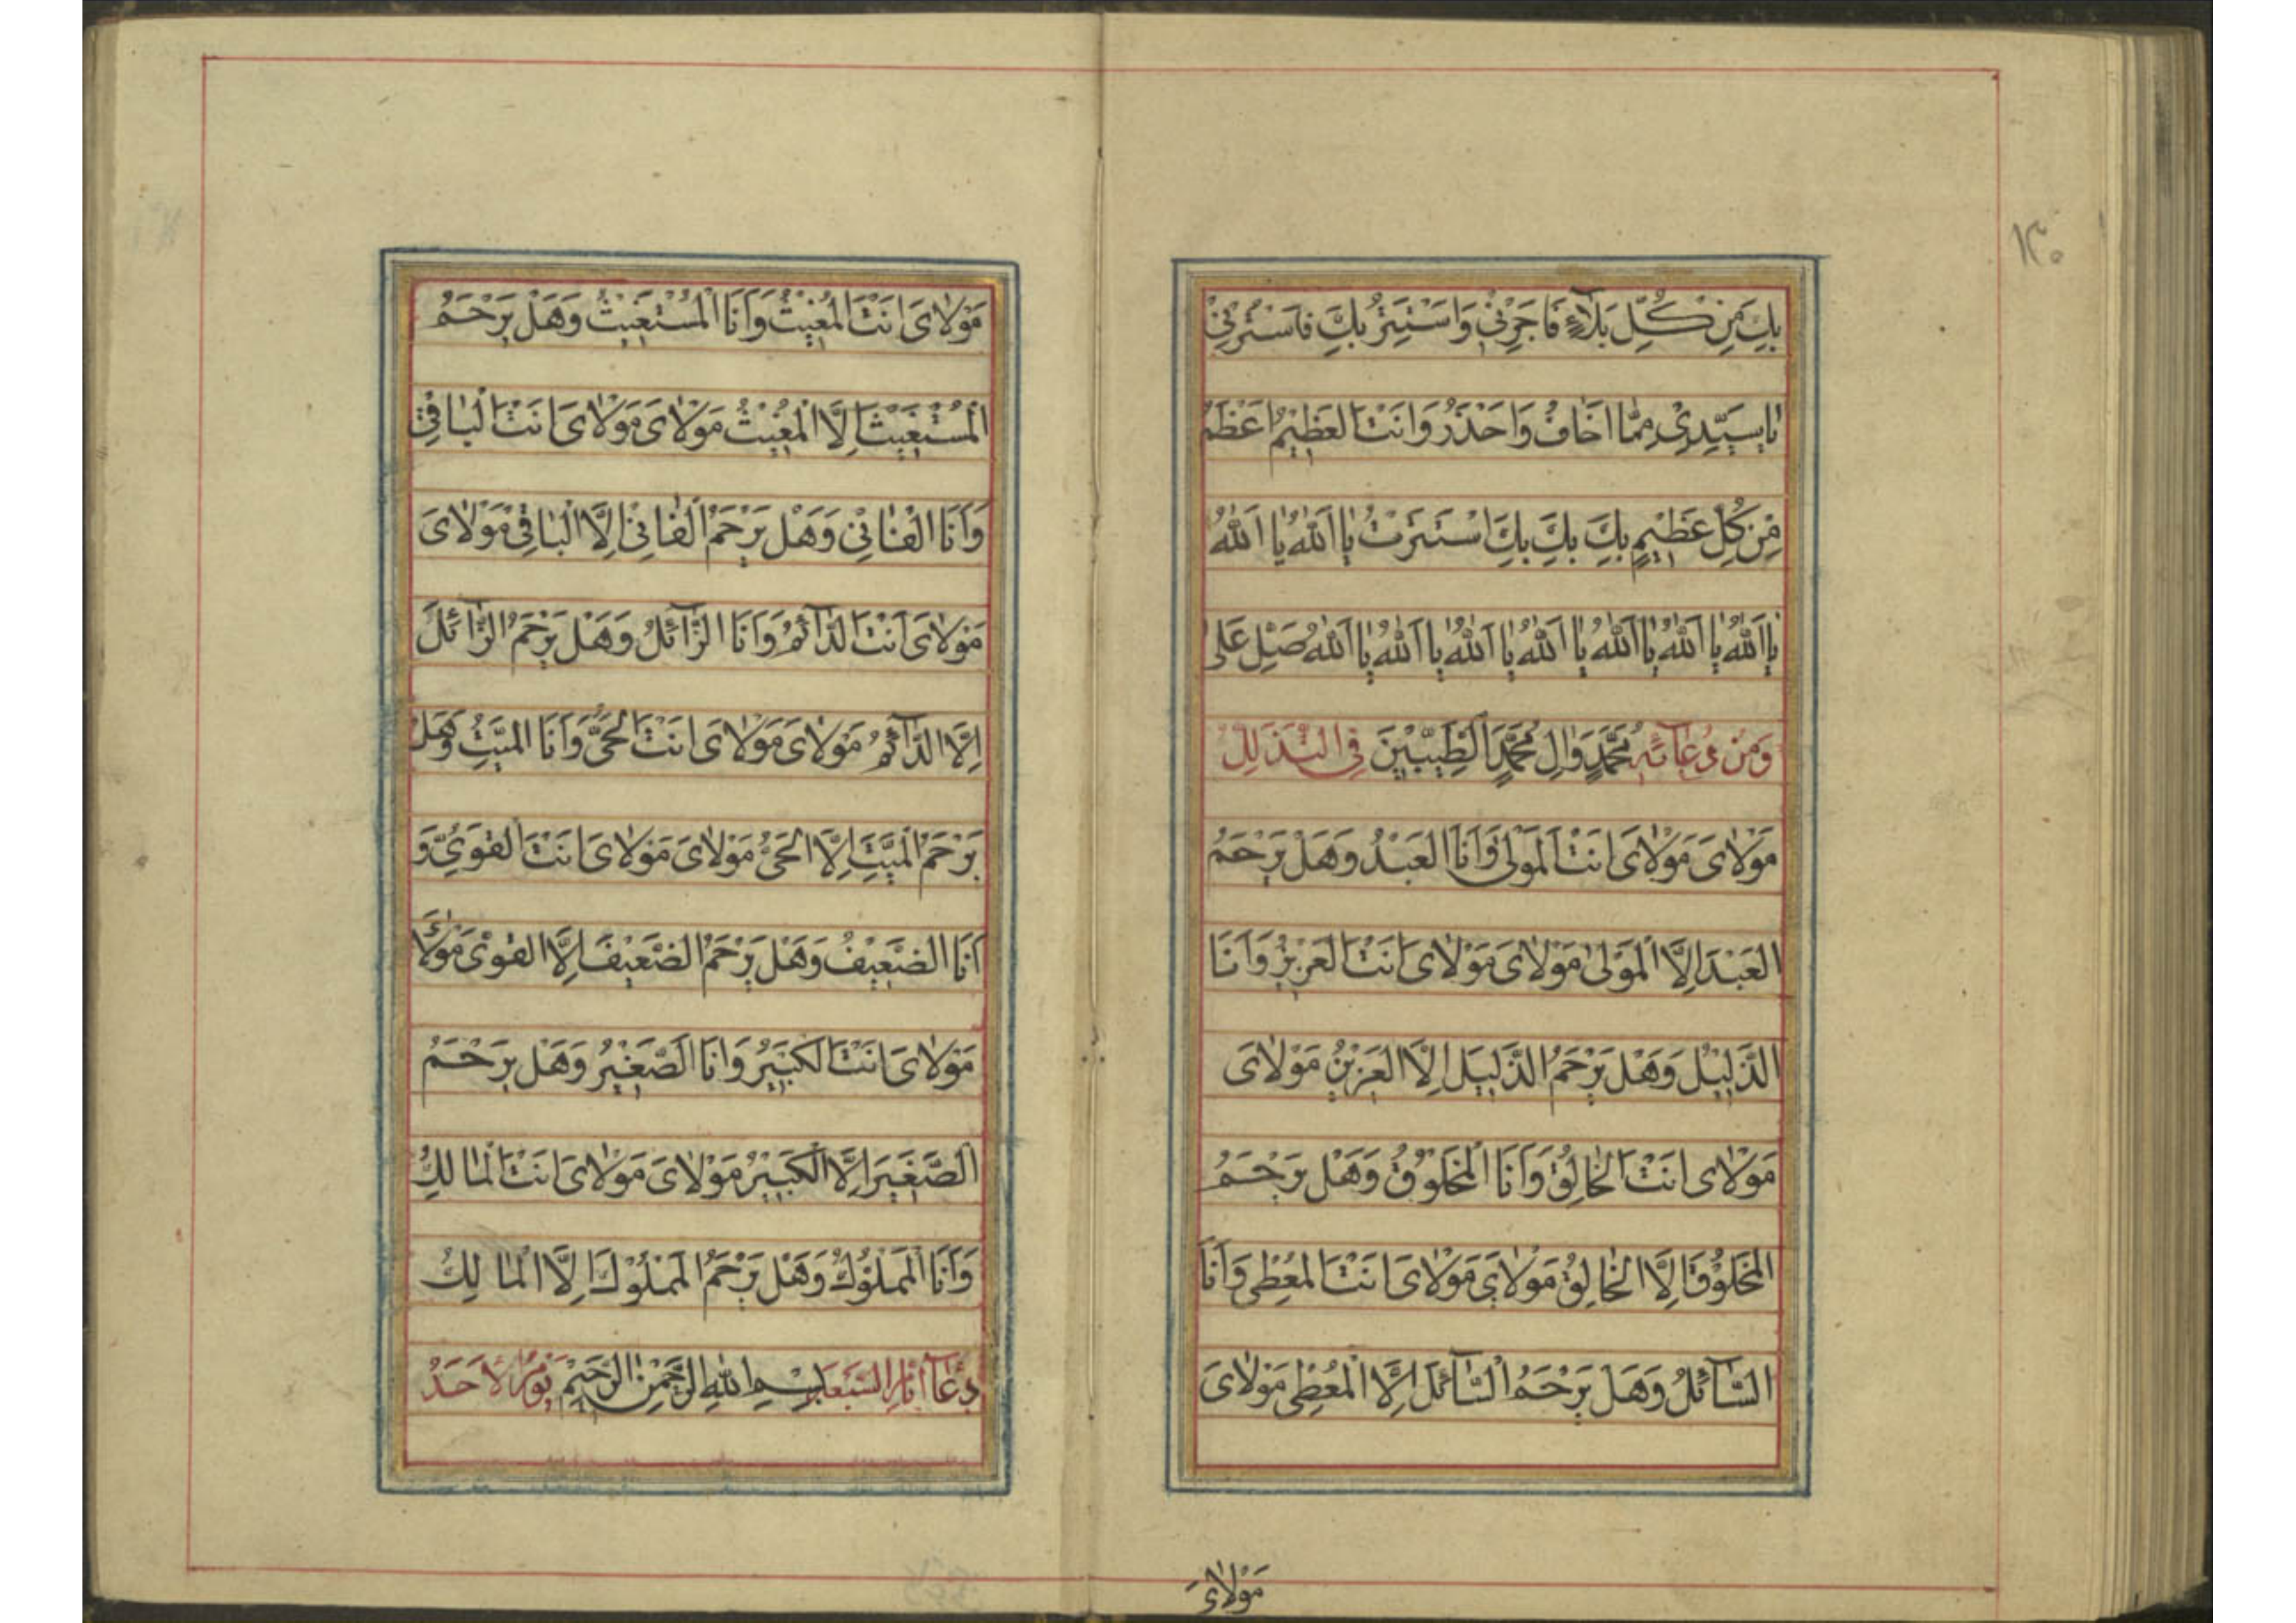 بِكَ مِنْ كُلِّ بَلَاۤءٍ فَاَجِرْنِيْ وَاَسْتَتِرُ بِكَ فَاسْتُرْنِيْ
يٰا سَيِّدِيْ مِمّٰا اَخَافُ وَاَحْذَرُ وَاَنْتَ الْعَظِيْمُ اَعْظَمُ
مِنْ كُلِّ عَظِيْمٍ بِكَ بِكَ بِكَ اسْتَتَرْتُ يٰا اَللّٰهُ يٰا اَللّٰهُ
يٰا اَللّٰهُ يٰا اَللّٰهُ يٰا اَللّٰهُ يٰا اَللّٰهُ يٰا اَللّٰهُ يٰا اَللّٰهُ يٰا اَللّٰهُ صَلِّ عَلٰى
وَمِنْ دُعٰاۤئِهِ مُحَمَّدٍ وَاٰلِ مُحَمَّدٍ الطَّيِّبِيْنَ فِي التَّذَلُّلِ
مَوْلٰاىَ مَوْلٰاىَ اَنْتَ الْمَوْلٰى وَاَنَا الْعَبْدُ وَهَلْ يَرْحَمُ
الْعَبْدَ اِلَّا الْمَوْلٰى مَوْلٰاىَ مَوْلٰاىَ اَنْتَ الْعَزِيْزُ وَاَنَا
الذَّلِيْلُ وَهَلْ يَرْحَمُ الذَّلِيْلَ اِلَّا الْعَزِيْزُ مَوْلٰاىَ
مَوْلٰاىَ اَنْتَ الْخٰالِقُ وَاَنَا الْمَخْلُوْقُ وَهَلْ يَرْحَمُ
الْمَخْلُوْقَ اِلَّا الْخٰالِقُ مَوْلٰاىَ مَوْلٰاىَ اَنْتَ الْمُعْطِي وَاَنَا
السَّاۤئِلُ وَهَلْ يَرْحَمُ السَّاۤئِلَ اِلَّا الْمُعْطِي مَوْلٰاىَ
مَوْلٰاىَ
مَوْلٰاىَ اَنْتَ الْمُغِيْثُ وَاَنَا الْمُسْتَغِيْثُ وَهَلْ يَرْحَمُ
الْمُسْتَغِيْثَ اِلَّا الْمُغِيْثُ مَوْلٰاىَ مَوْلٰاىَ اَنْتَ الْبٰاقِيْ
وَاَنَا الْفٰانِيْ وَهَلْ يَرْحَمُ الْفٰانِيْ اِلَّا الْبٰاقِيْ مَوْلٰاىَ
مَوْلٰاىَ اَنْتَ الدَّاۤئِمُ وَاَنَا الزَّاۤئِلُ وَهَلْ يَرْحَمُ الزَّاۤئِلَ
اِلَّا الدَّاۤئِمُ مَوْلٰاىَ مَوْلٰاىَ اَنْتَ الْحَيُّ وَاَنَا الْمَيِّتُ وَهَلْ
يَرْحَمُ الْمَيِّتَ اِلَّا الْحَيُّ مَوْلٰاىَ مَوْلٰاىَ اَنْتَ الْقَوِيُّ وَ
اَنَا الضَّعِيْفُ وَهَلْ يَرْحَمُ الضَّعِيْفَ اِلَّا الْقَوِيُّ مَوْلٰاىَ
مَوْلٰاىَ اَنْتَ الْكَبِيْرُ وَاَنَا الصَّغِيْرُ وَهَلْ يَرْحَمُ
الصَّغِيْرَ اِلَّا الْكَبِيْرُ مَوْلٰاىَ مَوْلٰاىَ اَنْتَ الْمٰالِكُ
وَاَنَا الْمَمْلُوْكُ وَهَلْ يَرْحَمُ الْمَمْلُوْكَ اِلَّا الْمٰالِكُ
دُعٰاۤءُ اَيّٰامِ السَّبْعَةِ بِسْمِ اللّٰهِ الرَّحْمٰنِ الرَّحِيْمِ يَوْمُ الْاَحَدِ